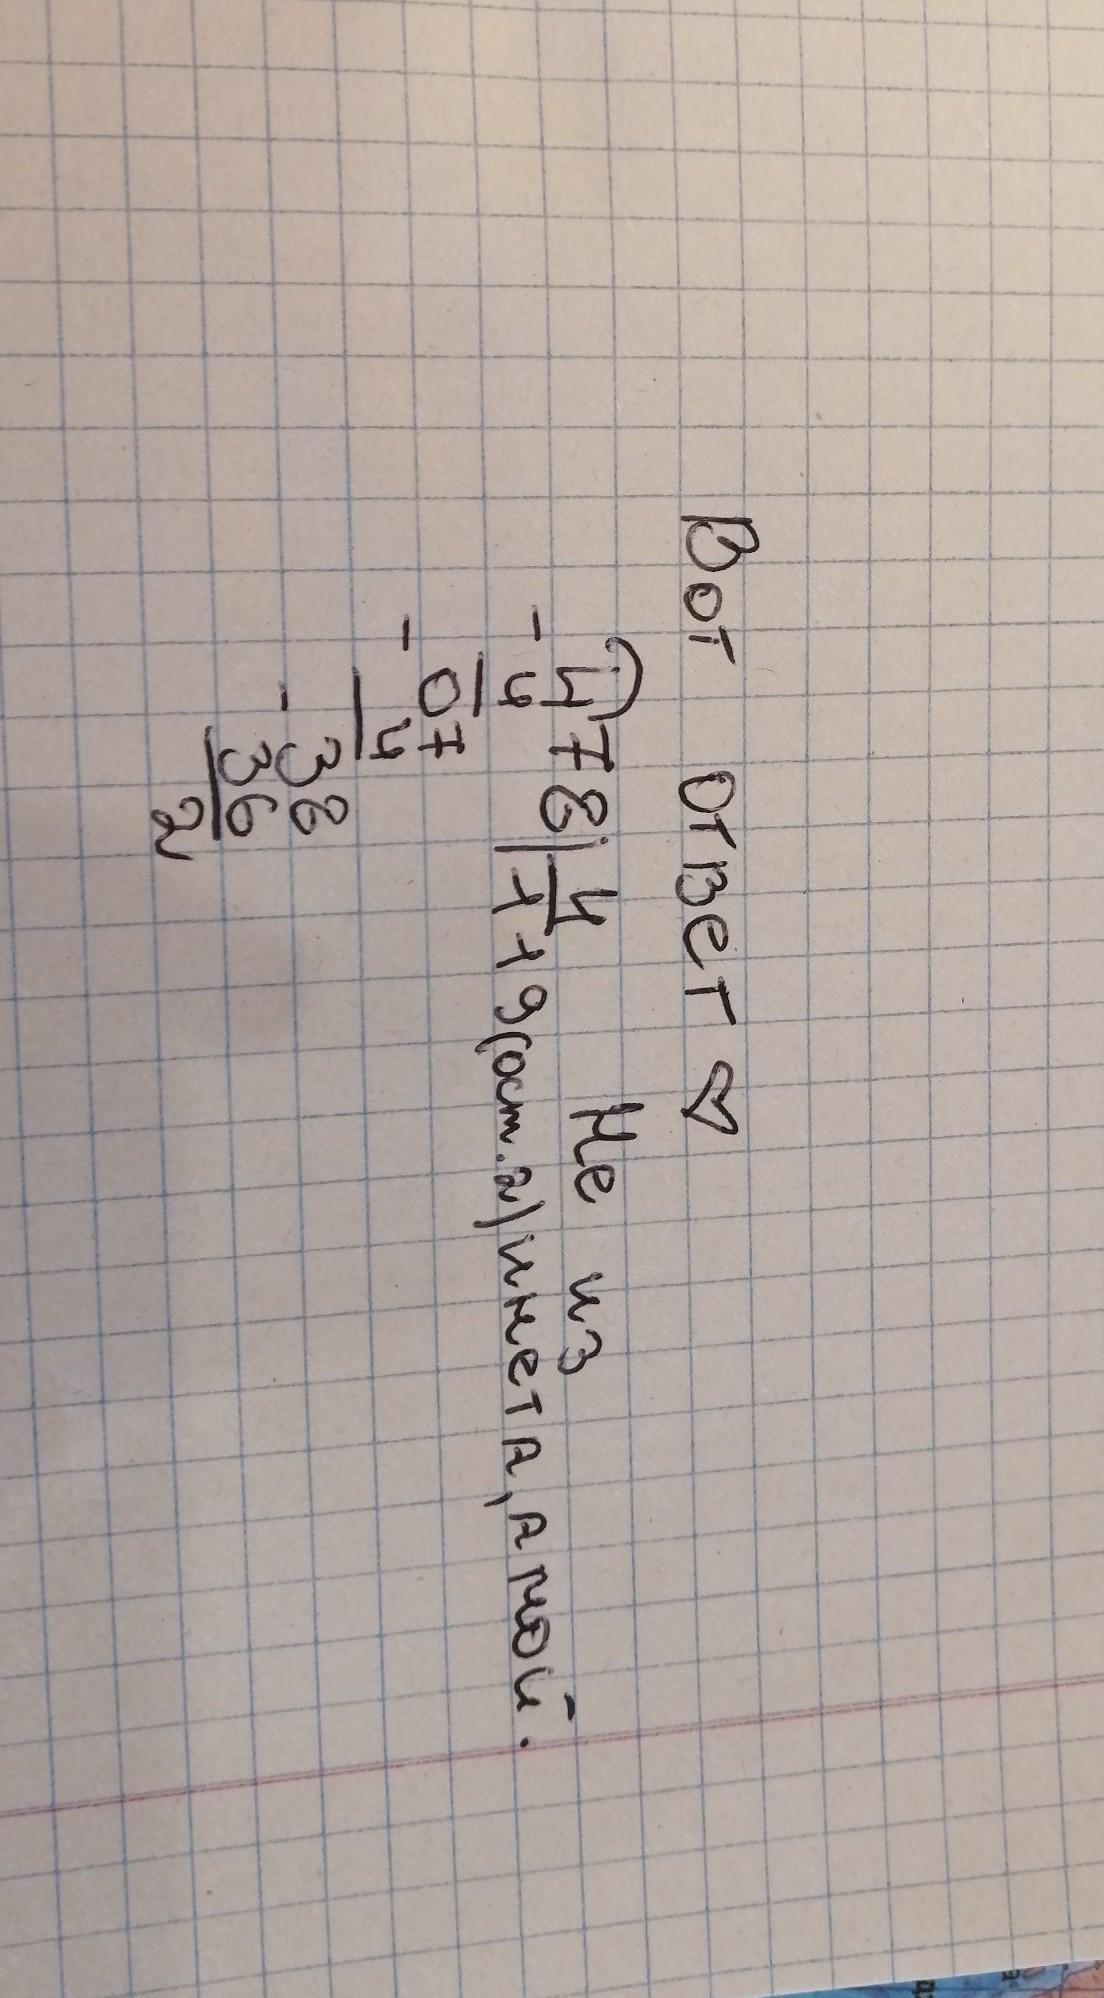 Вот ответ ♡
478|4 Не из
-4 119(ост.2) инета, а мой.
07
-4
38
-36
2